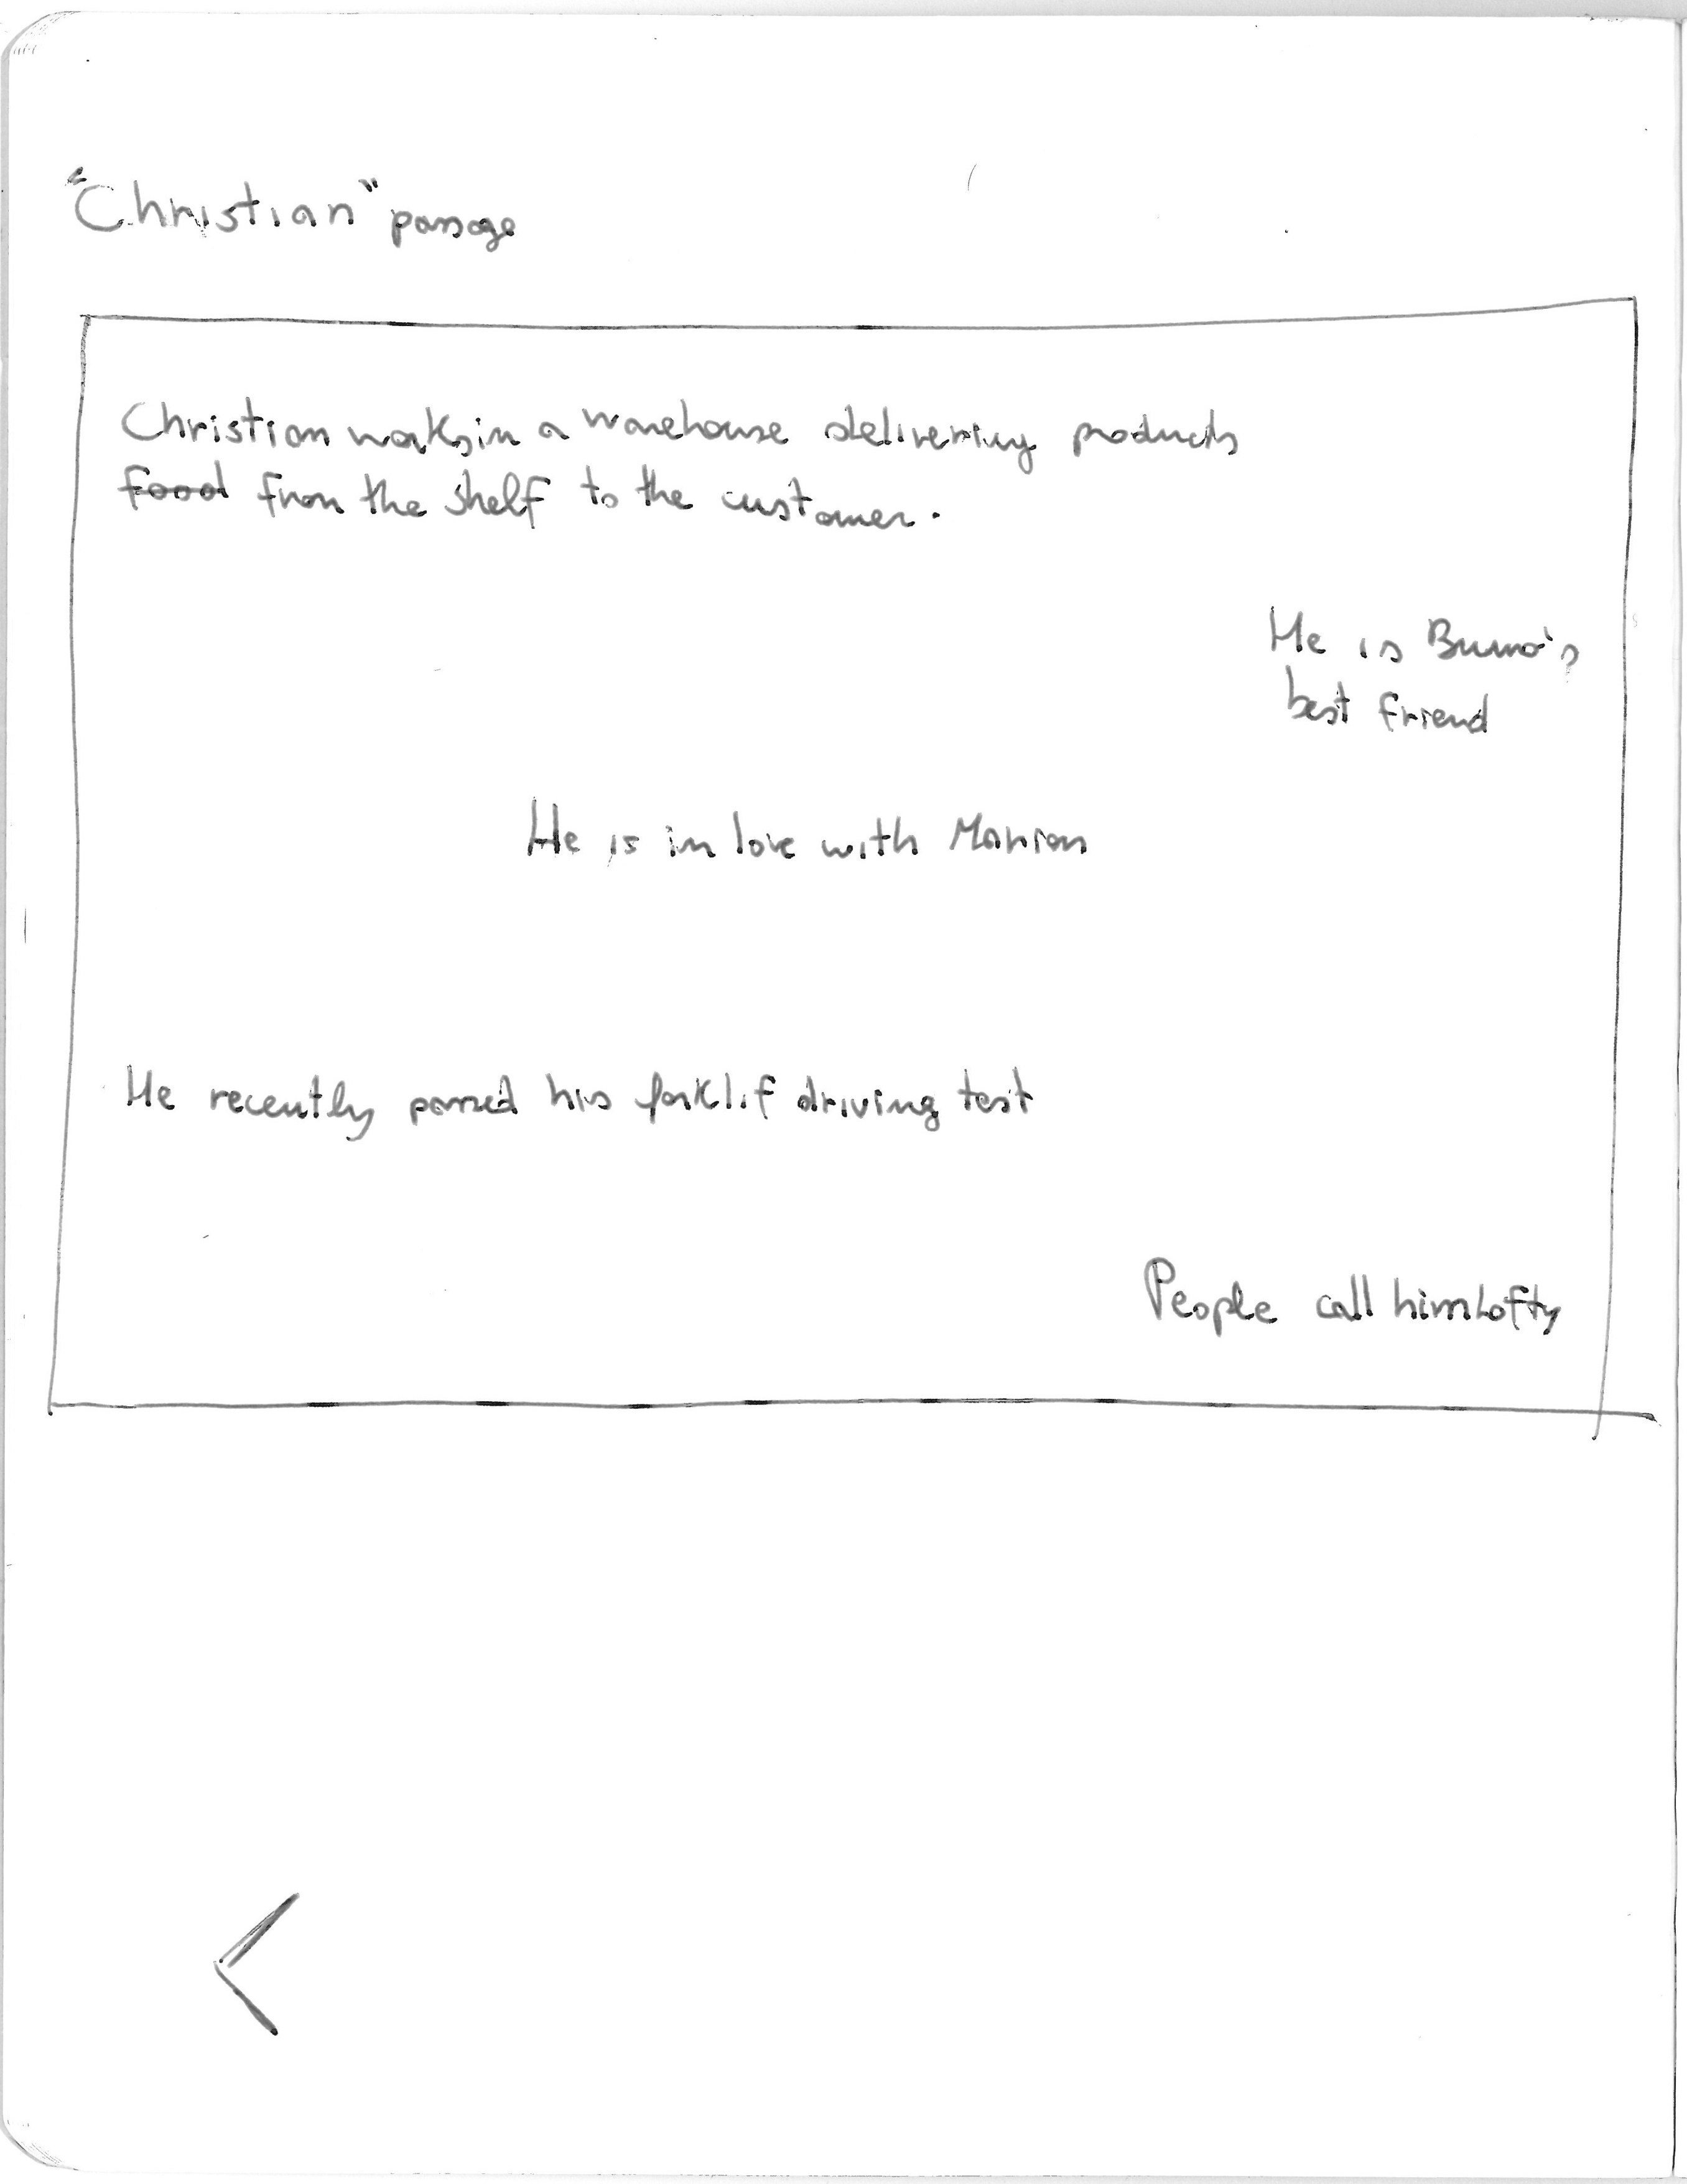 "Christian" passage
Christian works in a warehouse delivering products
food from the shelf to the customer.
He is Bruno's
best friend
He is in love with Marion
He recently passed his forklif driving test
People call him Lofty